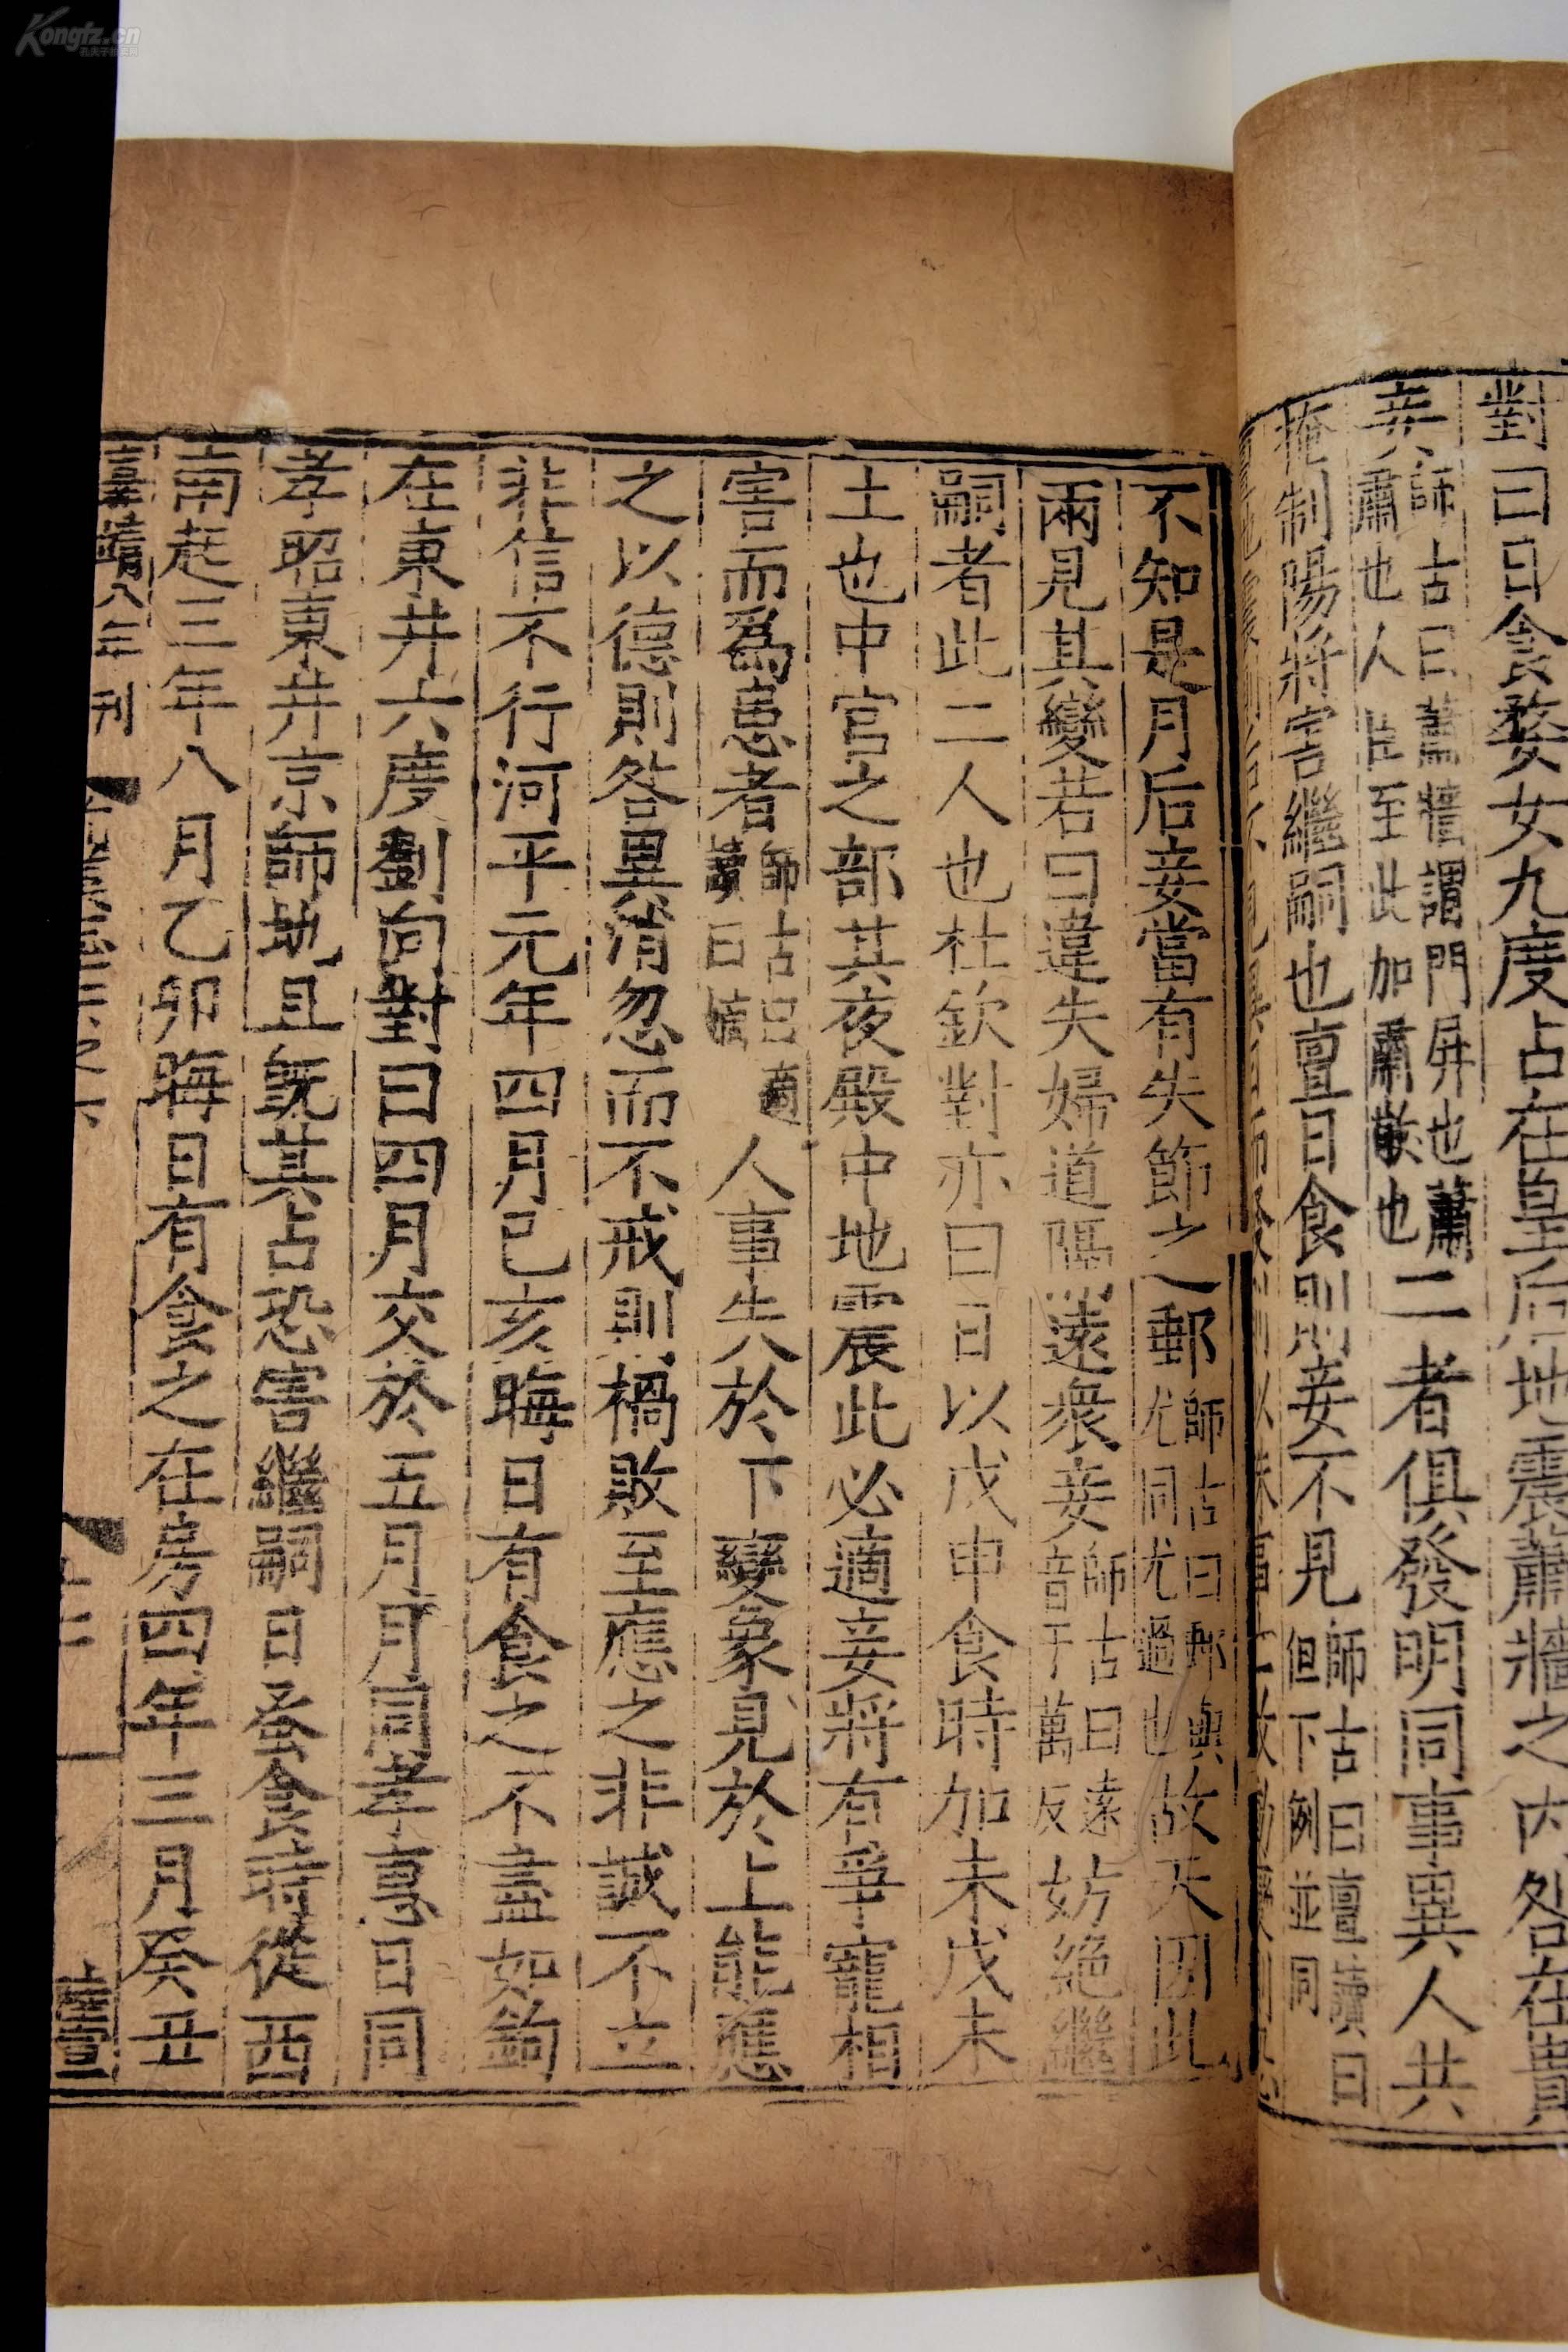 對曰日食婺女九度占在皇后地震蕭牆之内咎在貴
妾師古曰蕭牆謂門屏也蕭肅也人臣至此加肅敬也二者俱發明同事異人共
掩制陽將害繼嗣也亶日食則妾不見師古曰亶讀曰但下例並同
不知是月后妾當有失節之郵師古曰郵與尤同尤過也故天因此
兩見其變若曰違失婦道隔遠衆妾師古曰遠音于萬反妨絶繼
嗣者此二人也杜欽對亦曰日以戊申食時加未戊未
土也中宫之部其夜殿中地震此必適妾將有爭寵相
害而爲患者師古曰適讀曰嫡人事失於下變象見於上能應
之以德則咎異消忽而不戒則禍敗至應之非誠不立
非信不行河平元年四月己亥晦日有食之不盡如鉤
在東井六度劉向對曰四月交於五月月同孝惠日同
孝昭東井京師地且既其占恐害繼嗣日蚤食時從西
南起三年八月乙卯晦日有食之在房四年三月癸丑
八年刊
Kongfz.cn